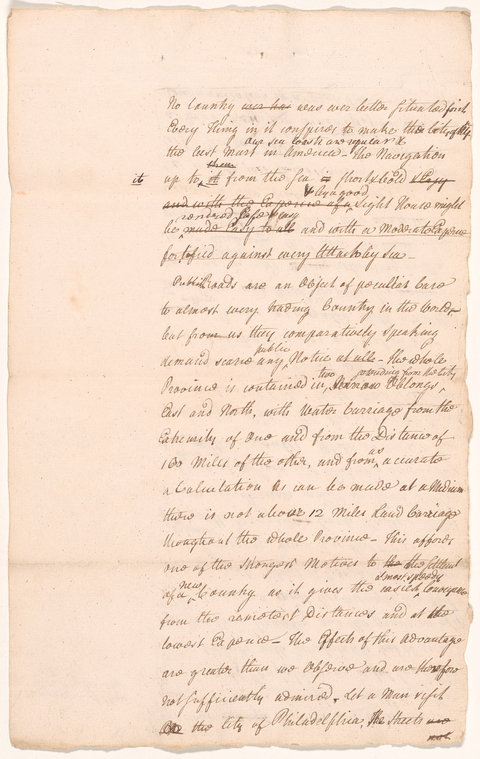 No Country ever has was ever better situated for it
Every Thing in it conspires to make the City of
our sea Coasts are regular &
the best Mart in America – The Navigation
them
it up to it from the Sea is short & bold & Easy
& by a good
and with the Expence of a Light House might
rendered safe & easy
be made Easy to all and with a Moderate Expence
fortified against every Attack by Sea –
Public Roads are an Object of peculiar Care
to almost every trading Country in the World –
but from us they comparatively speaking
public
demand scarce any Notice at all – the whole
two extending from the City
Province is contained in, Narrow Oblongs
East and North, with Water Carriage from the
Extremity of One and from the Distance of
160 Miles of the other, and from as accurate
a Calculation as can be made at a Medium
there is not above 12 Miles Land Carriage
throughout the whole Province – This affords
one of the strongest Motives to the the Settlement
new & most speedy
of a Country as it gives the easiest Conveyance
from the remotest Distances and at the
lowest Expence – The Effects of this Advantage
are greater than we Observe and are therefore
not sufficiently admired. Let a Man visit
the City of Philadelphia, the Streets are
not